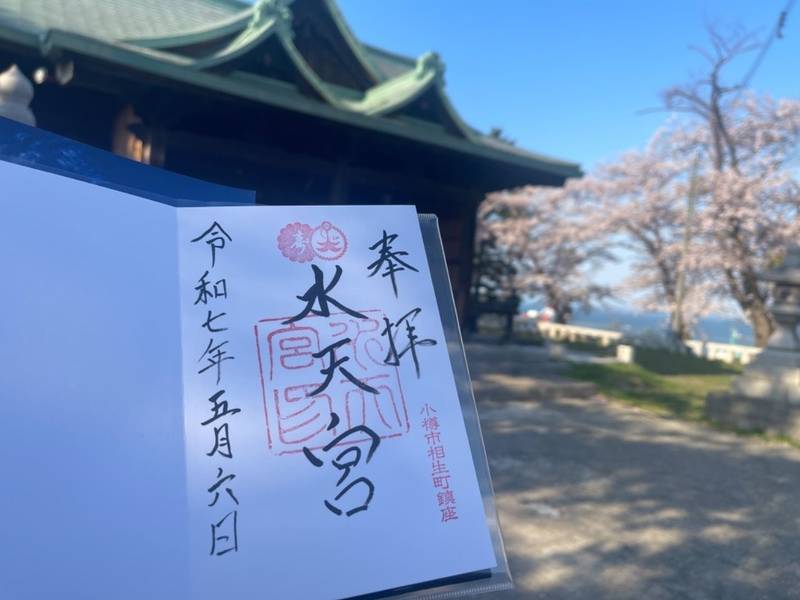 奉拝
小樽市相生町鎮座
水天宮
令和七年五月六日